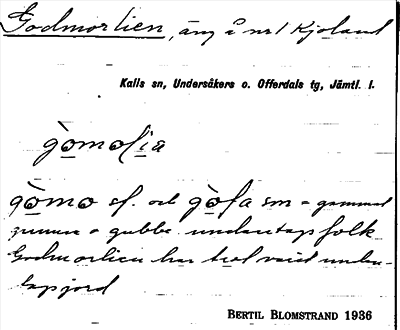 Godmorlien, äng å nr 1 Kjoland
Kalls sn, Undersåkers o. Offerdals tg, Jämtl. l.
gòmolia
gòmo sf. och gòfa sm = gammal
gumma o gubbe undantagsfolk
Godmorlien har trol varit undan-
tagsjord
BERTIL BLOMSTRAND 1936